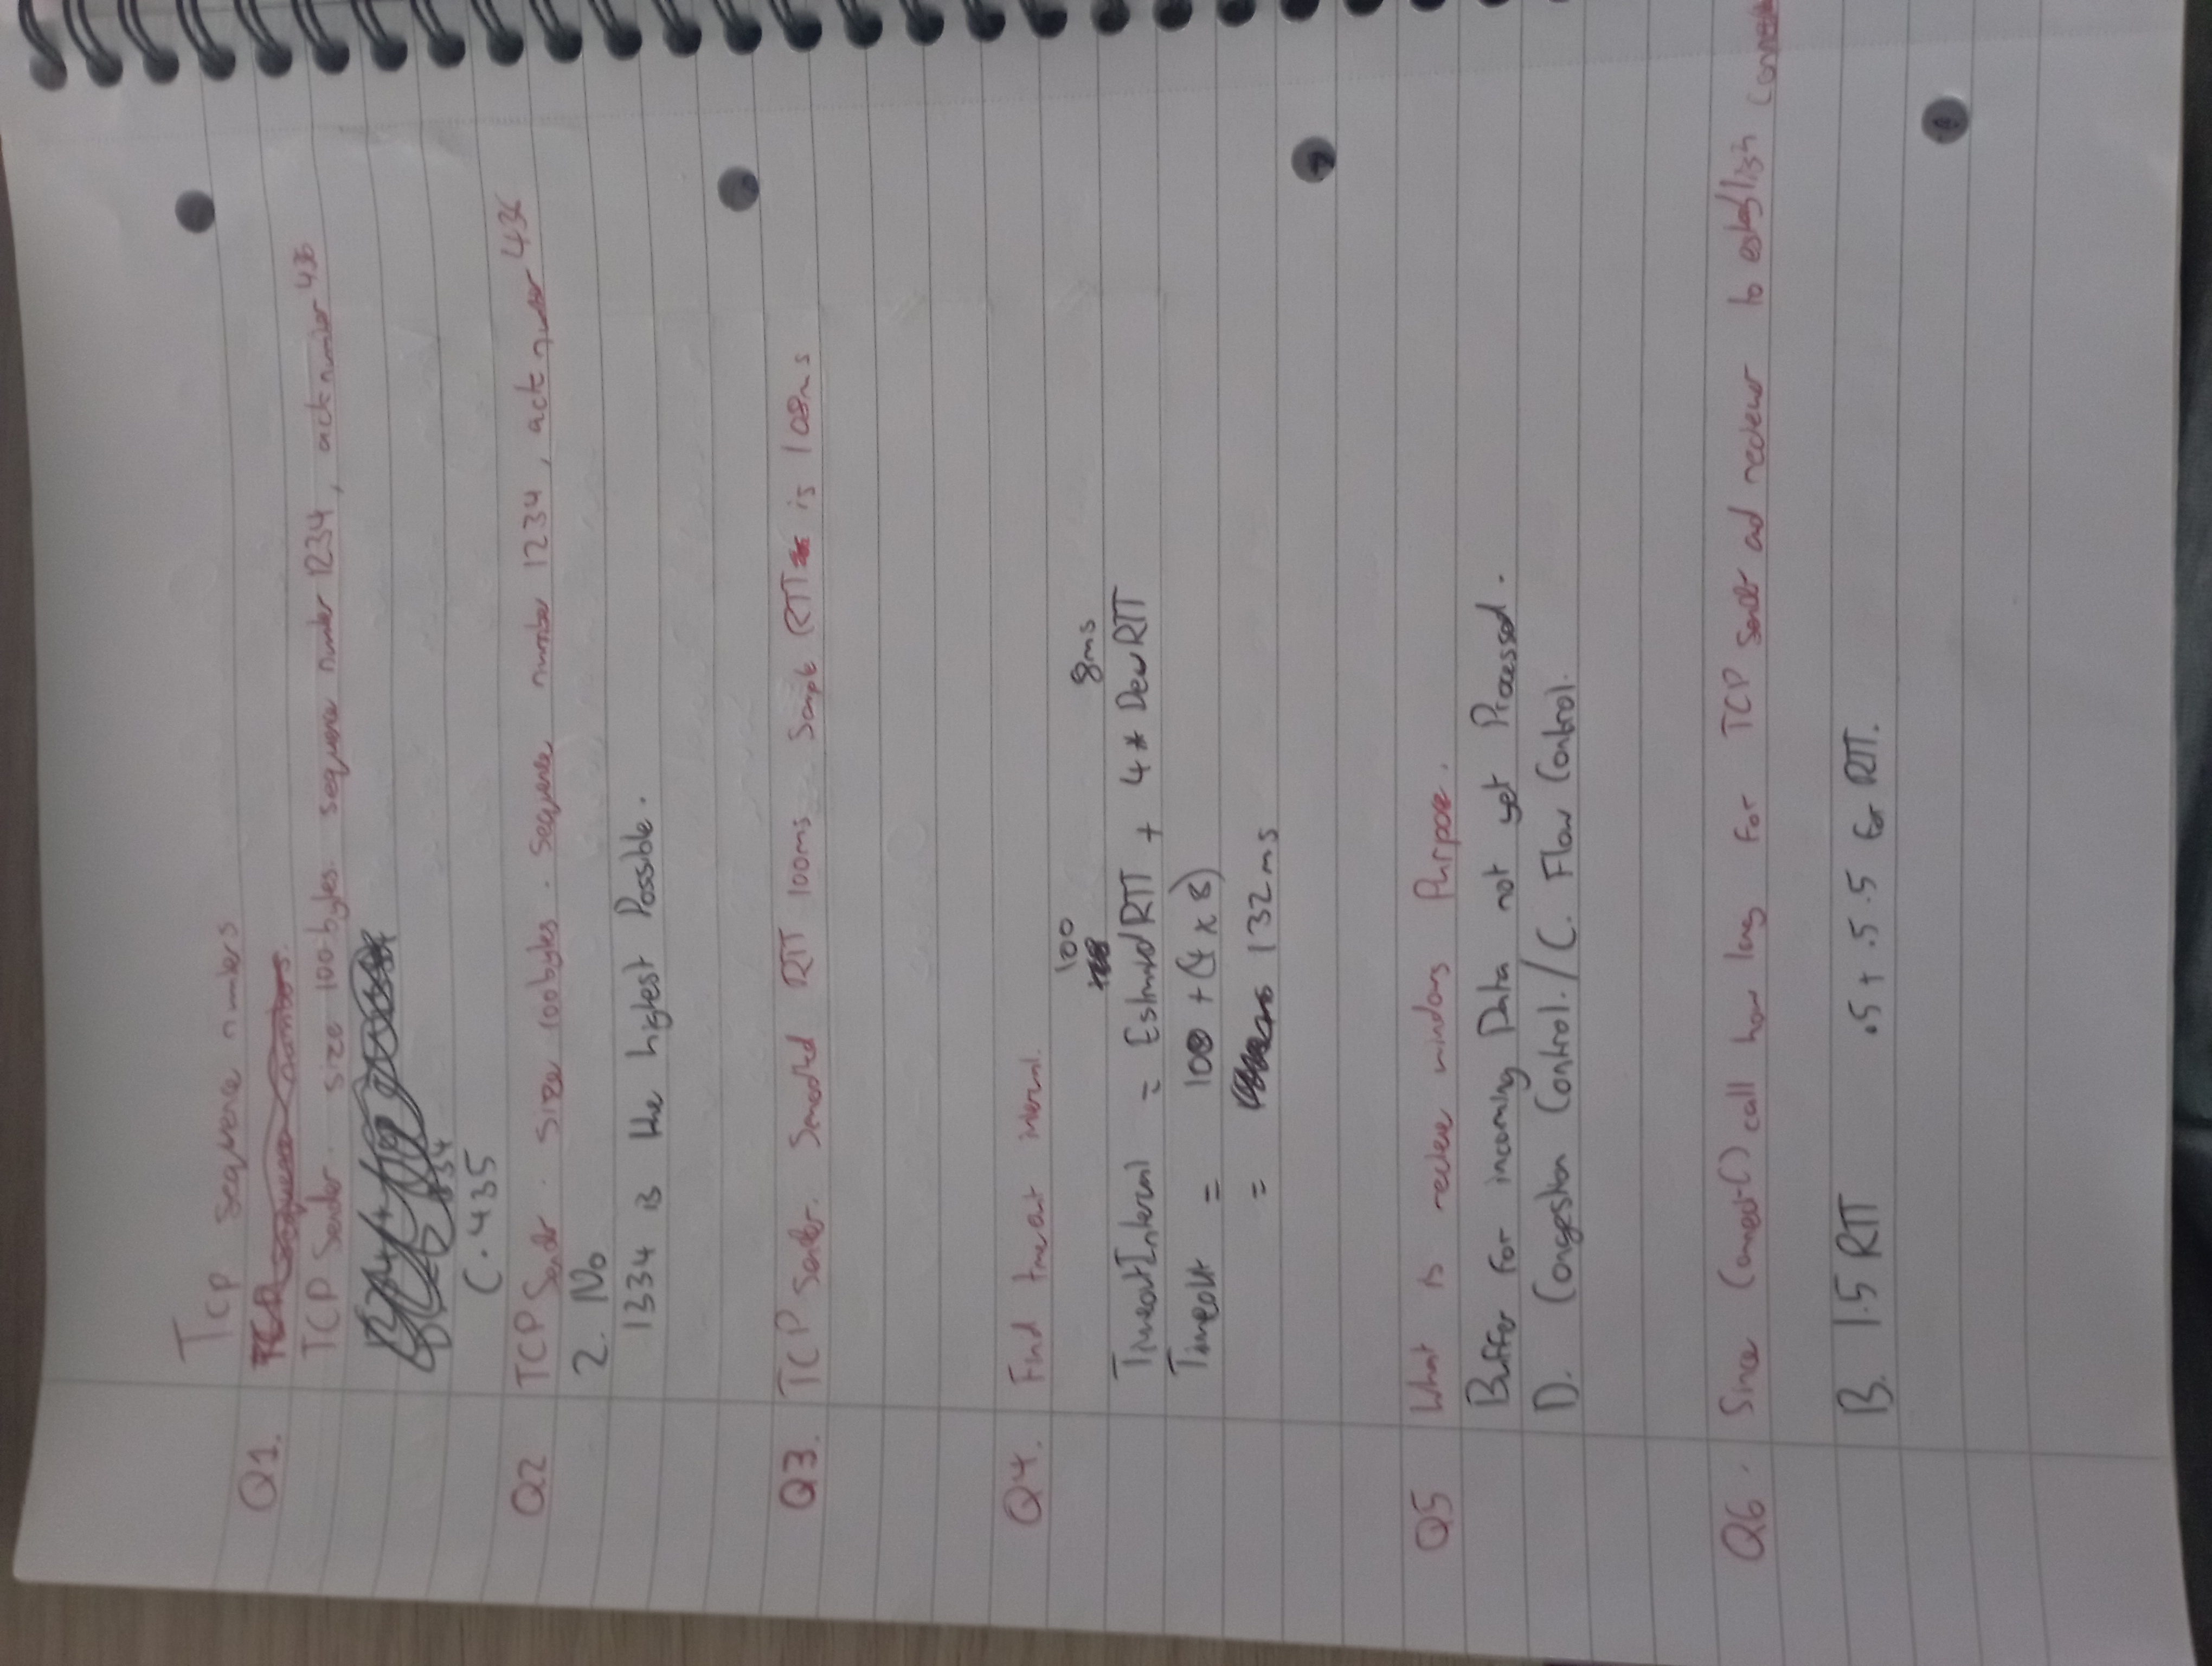 Tcp sequence numbers
Q1. TCP sequence numbers.
TCP Sender. size 100 bytes. sequence number 1234, ack number 436
C. 435
Q2 TCP Sender. Size 100bytes. Sequence number 1234, ack number 436
2. No
1334 is the highest Possible.
Q3. TCP Sender. Smoothed RTT 100ms Sample RTT is 108ms
Q4. Find timeout interval.
100
8ms
TimeoutInterval = EstimatedRTT + 4 * DevRTT
Timeout = 100 + (4 x 8)
= 132ms
Q5 What is recieve windows Purpose.
Buffer for incoming Data not yet Processed.
D. Congestion Control. / C. Flow Control.
Q6. Since Connect() call how long for TCP sender and reciever to establish
B. 1.5 RTT .5 + .5 .5 for RTT.